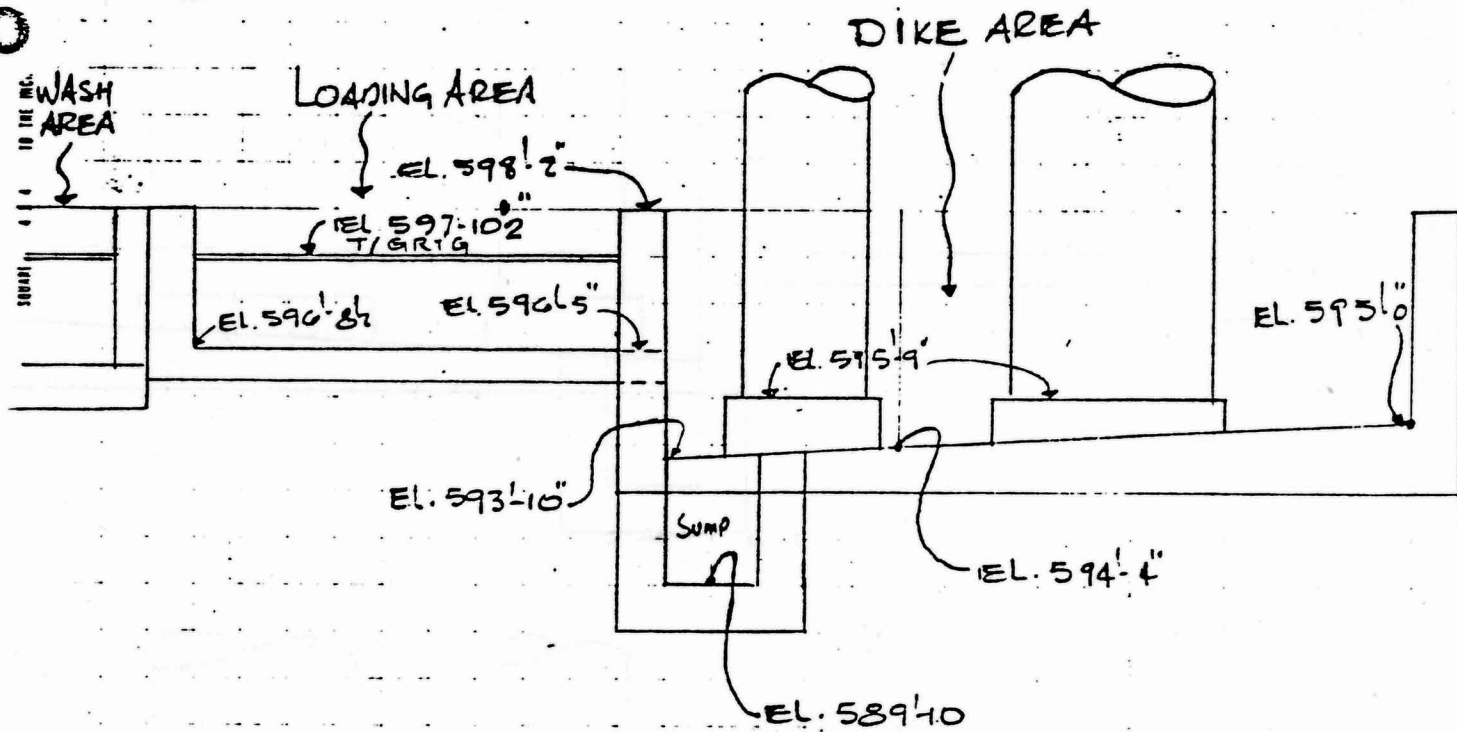 DIKE AREA
WASH
AREA
LOADING AREA
SQUARE 4 X 4 TO THE INC.
EL. 598'-2"
EL. 597-10½"
T/GRT'G
EL. 596'-8½
EL. 596'-5"
EL. 595'-0"
EL. 595'-9"
EL. 593'-10"
Sump
EL. 594'-4"
EL. 589'-10